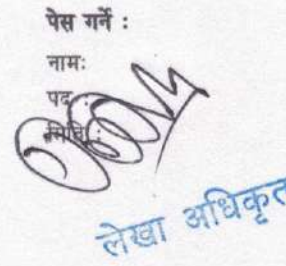 पेस गर्ने :
नामः
पद :
मिति :
लेखा अधिकृत